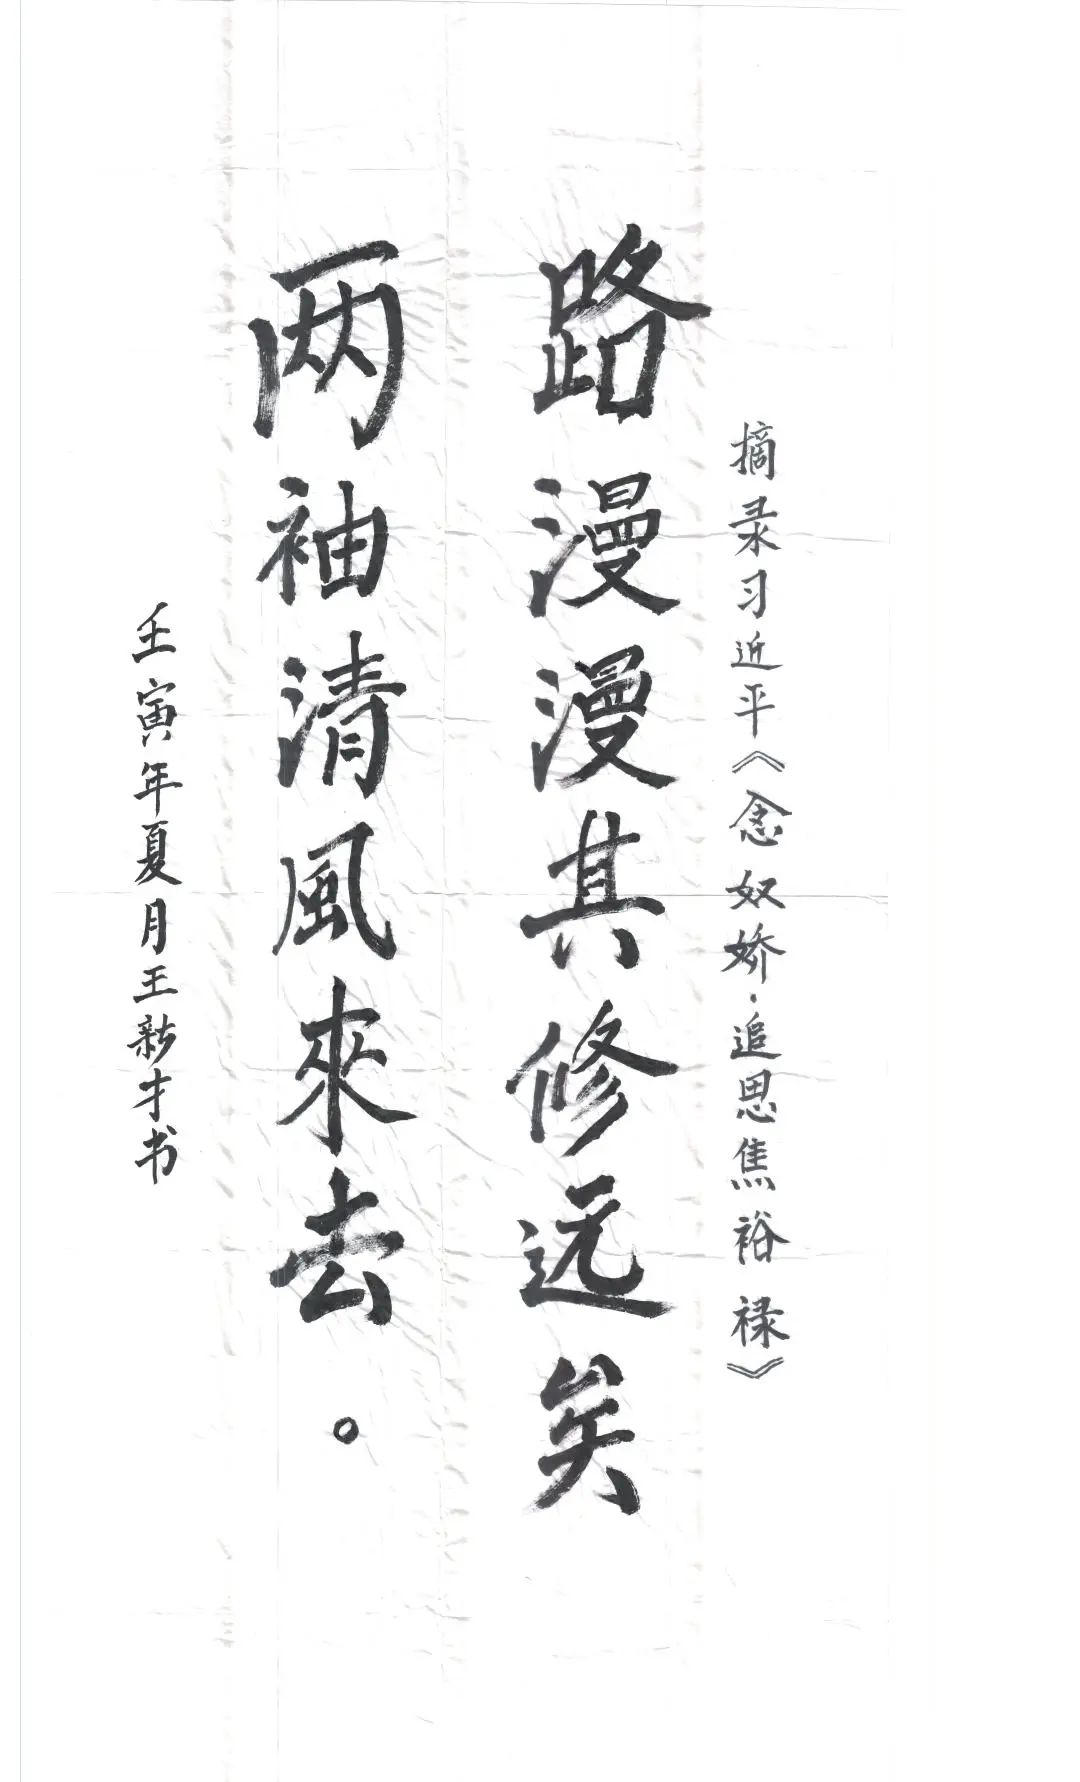 摘录习近平《念奴娇·追思焦裕禄》
路漫漫其修远矣
两袖清風來去。
壬寅年夏月王新才书